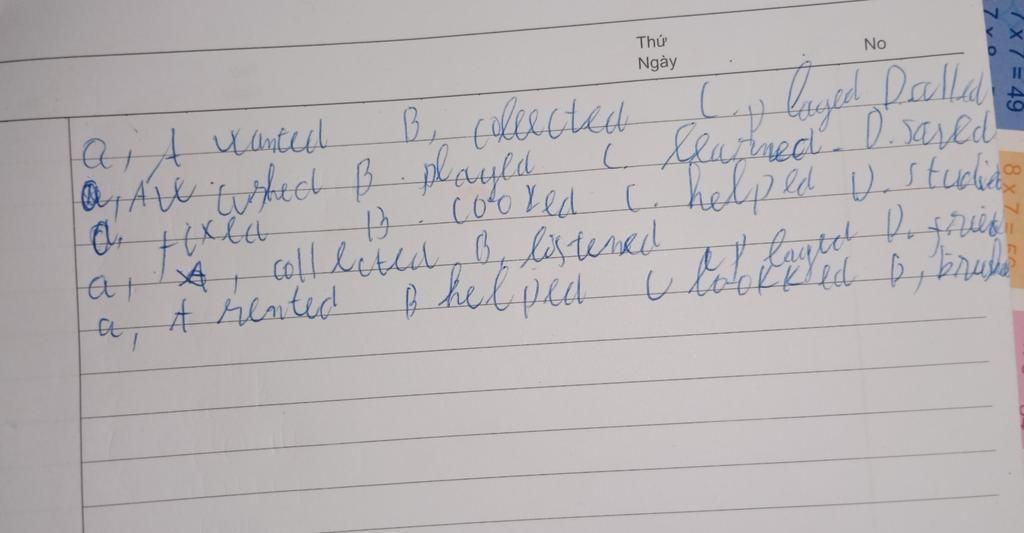 Thứ
Ngày
No
7 x 7 = 49
8 x 7 =
a, A wanted B, collected C. played D
a, A B. played C. learned D. saved
a, fixed B. cooked C. helped D. studie
a, A, collected B, listened C played D. fried
a, A rented B helped C lookked D, brushe